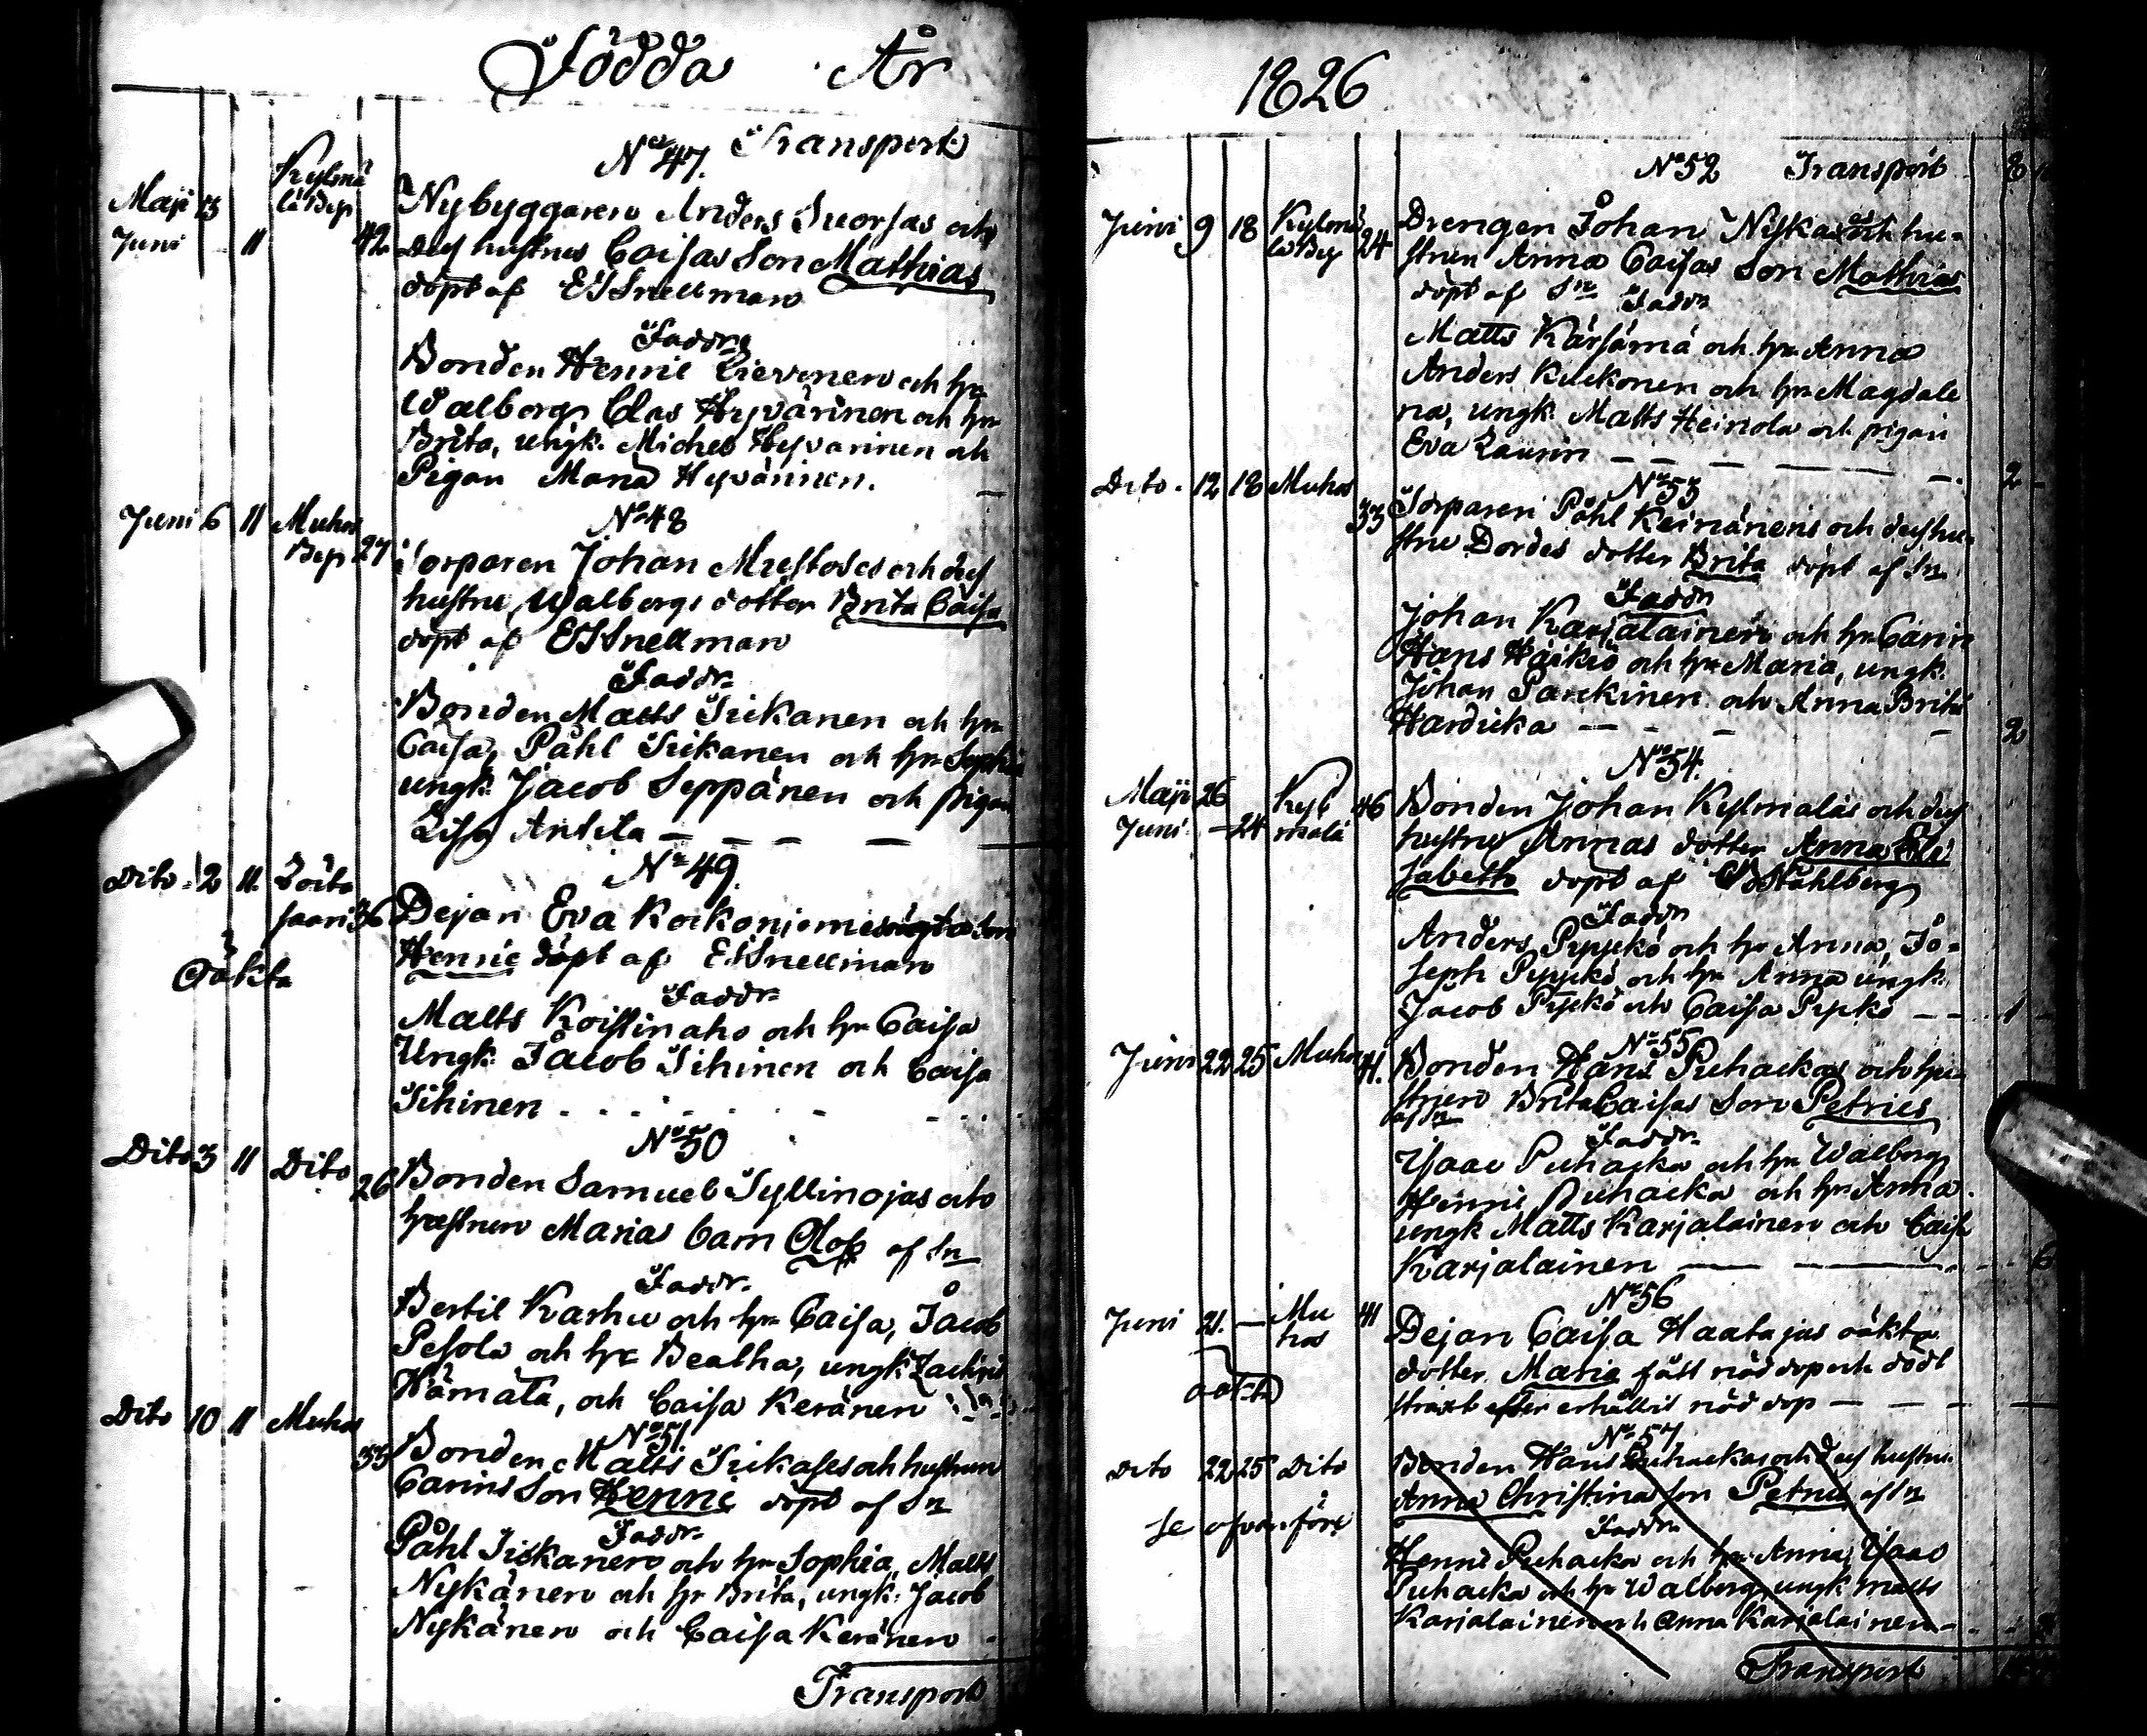 Födda År
No 47. Transport
Maji 13 Kylmä
lä By Nybyggaren Anders Suorsas och
Juni 11 42 dess hustrus Caisas Son Mathias
döpt af EJSnellman
Faddr
Bonden Henric Lievonen och hr
Walborg, Clas Hyvärinen och hr
Brita, ungk. Michel Hyvärinen och
Pigan Maria Hyvärinen.
No 48
Juni 6 11 Muhos
By 27 Torparen Johan Mustoses och dess
hustru Walborgs dotter Brita Caisa
döpt af EJSnellman
Faddr
Bonden Matts Tickanen och hr
Caisa, Påhl Tickanen och hr Sophia
ungk. Jacob Seppänen och pigan
Lisa Anttila — — — —
No 49.
Dito 2 11 Loito
saari 36 Dejan Eva Koikoniemis oägta Son
Henric döpt af EJSnellman
Oäkta
Faddr
Matts Koistinaho och hr Caisa
Ungk. Jacob Tihinen och Caisa
Tihinen
No 50
Dito 3 11 Dito 26 Bonden Samuel Tyllinojas och
hustrun Marias barn Olof af Sn
Faddr
Bertil Karhu och hr Caisa, Jacob
Pesola och hr Beatha, ungk Zachris
Hämälä, och Caisa Keränen
No 51.
Dito 10 11 Muhos 33 Bonden Matts Tickases och hustrun
Carins Son Henric döpt af Sn
Faddr
Påhl Tickanen och hr Sophia, Matts
Nykänen och hr Brita, ungk. Jacob
Nykänen och Caisa Keränen
Transport
1826
No 52 Transport 8
Juni 9 18 Kylmä
lä By 24 Drengen Johan Nyka och hu-
strun Anna Caisas Son Mathias
döpt af Sn Faddr
Matts Kärsämä och hr Anna
Anders Kukkonen och hr Magdale
na, ungk. Matts Heinola och pigan
Eva Laurin — — — — 2 -
No 53
Dito 12 18 Muhos 33 Torparen Påhl Keinänens och dess hu-
stru Dordes dotter Brita döpt af Sn
Faddr
Johan Karjalainen och hr Carin
Hans Häikiö och hr Maria, ungk.
Johan Parckinen och Anna Brita
Hardicka — — — 2
No 54.
Maji 26 Kyl 46 Bonden Johan Kylmäläs och dess
Juni - 24 mälä hustrus Annas dotter Anna Eli
sabeth döpt af Ståhlberg
Faddr
Anders Pyykö och hr Anna, Jo-
seph Pyykö och hr Anna ungk.
Jacob Pyykö och Caisa Pyykö — — 1 -
No 55
Juni 22 25 Muhos 41. Bonden Hans Puhackas och hu-
strun Brita Caisas Son Petrus
af Sn
Faddr
Isaac Puhacka och hr Walborg
Henric Puhacka och hr Anna.
ungk Matts Karjalainen och Caisa
Karjalainen — — 6
No 56
Juni 21. — Mu
hos 41 Dejan Caisa Haatajas oäkta
dotter Maria fått nöd dop och dödt
oäkta
straxt efter erhållit nöd dop — — —
No 57
Dito 22 25 Dito Bonden Hans Puhackas och dess hustrus
Anna Christina Son Petrus af Sn
Se ofvanföre
Faddr
Henric Puhacka och hr Anna, Isaac
Puhacka och hr Walborg, ungk Matts
Karjalainen och Anna Karjalainen
Transport